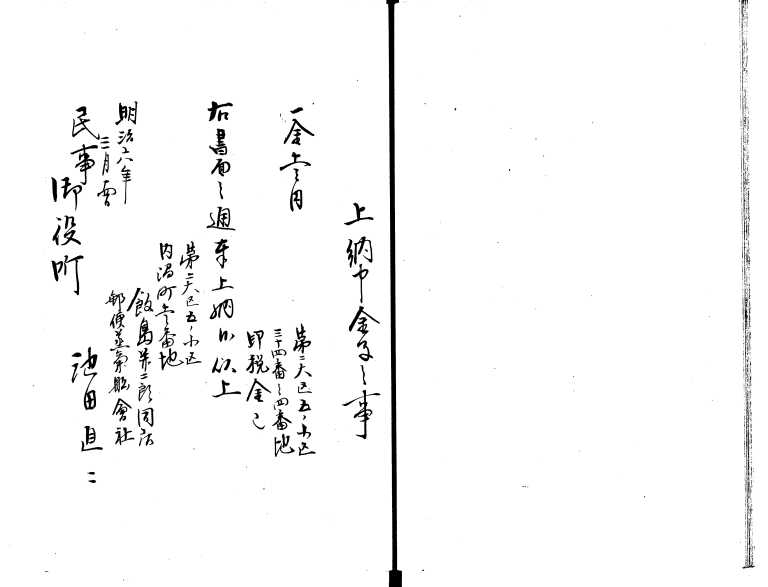 上納申金子之事
一金壱円
第二大区五ノ小区
三十四番之四番地
印税金
右書面之通奉上納候以上
第二大区五ノ小区
内湯町壱番地
飯島栄二郎同居
郵便蒸気船會社
池田直二
明治六年
三月
民事
御役所